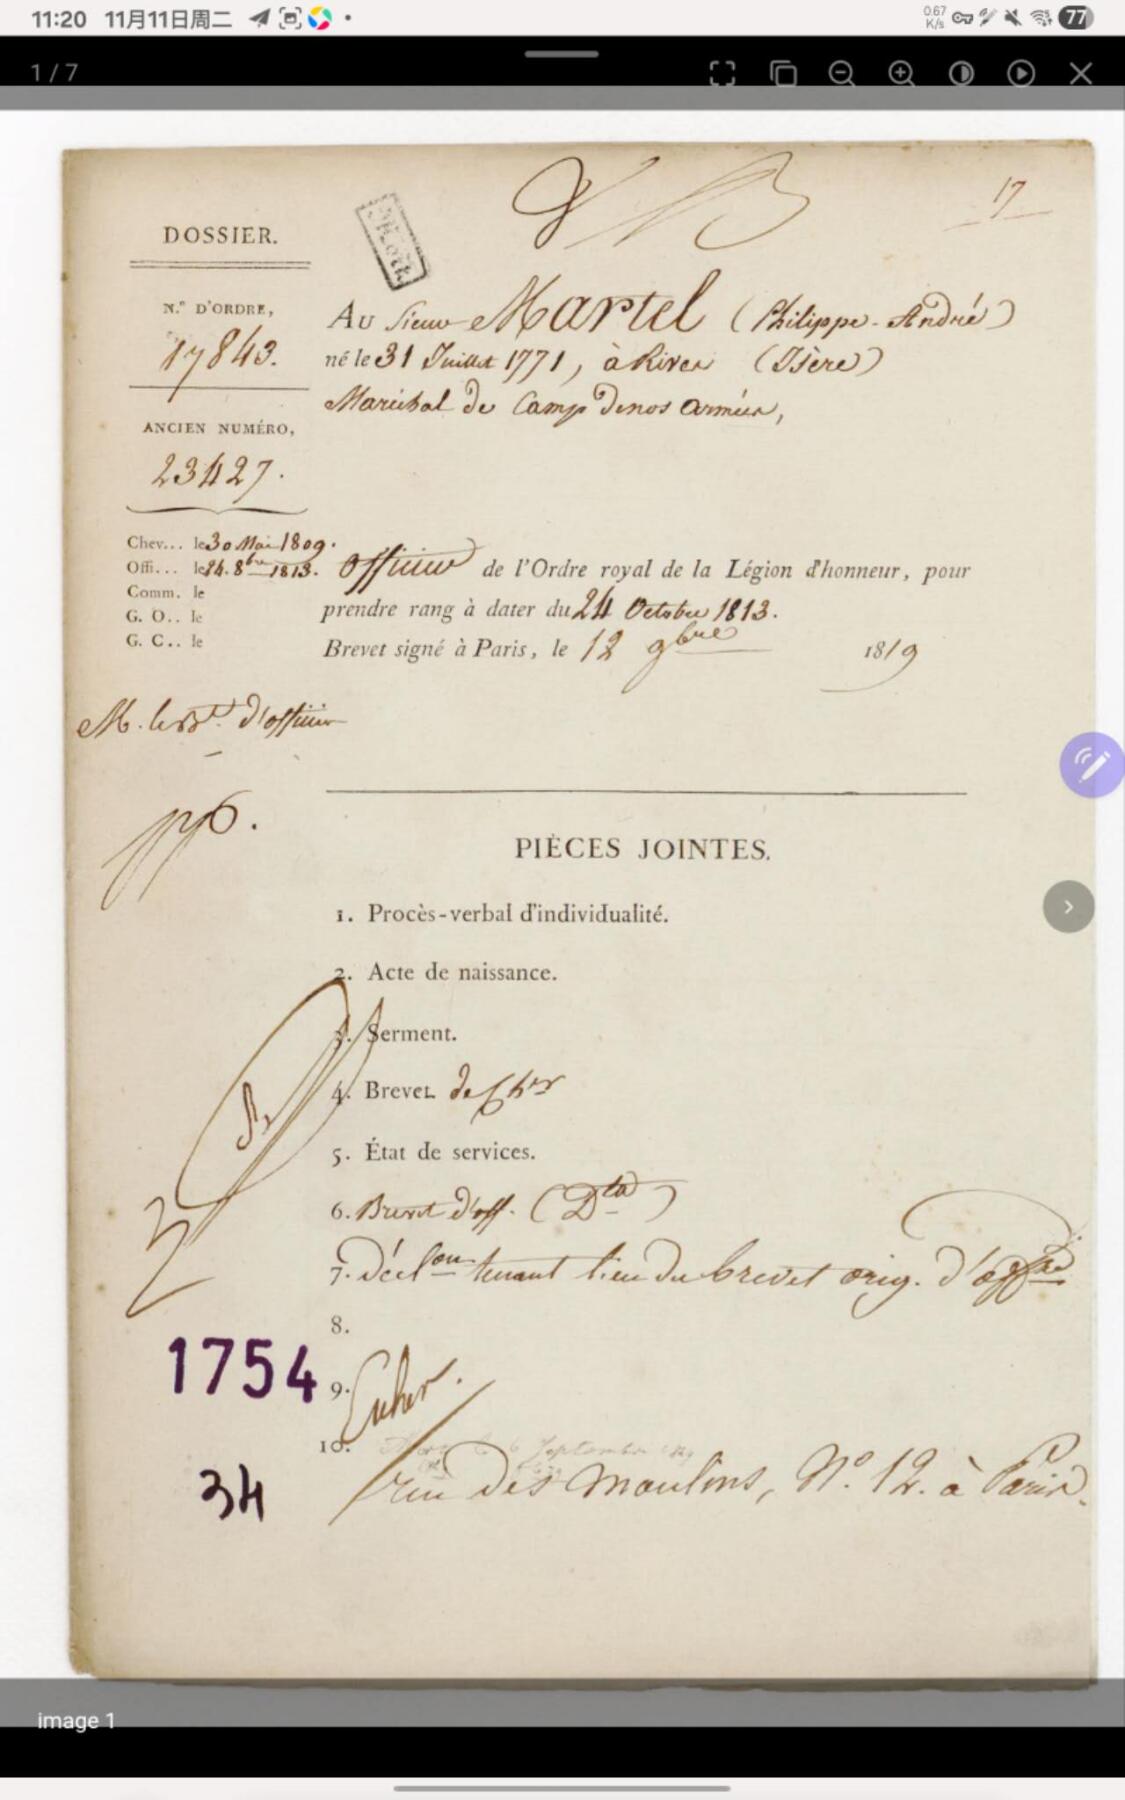 11:20 11月11日周二
0.67 K/s
77
1 / 7
17
DOSSIER.
N.° D'ORDRE,
17843.
ANCIEN NUMÉRO,
23427.
Au Sieur Martel (Philippe-André)
né le 31 Juillet 1771, à Rives (Isère)
Maréchal de Camp de nos armées,
Chev... le 30 Mai 1809.
Offi... le 24. 8bre 1813.
Comm. le
G. O.. le
G. C.. le
Officier de l'Ordre royal de la Légion d'honneur, pour
prendre rang à dater du 24 Octobre 1813.
Brevet signé à Paris, le 12 9bre 1819
d'officier
PIÈCES JOINTES.
1. Procès-verbal d'individualité.
2. Acte de naissance.
3. Serment.
4. Brevet de Cher
5. État de services.
6. Brevet d'off. (Dta)
7. Décl.on tenant lieu du brevet orig. d'
8.
9.
10.
rue des Moulins, N° 12. à Paris.
1754
34
image 1